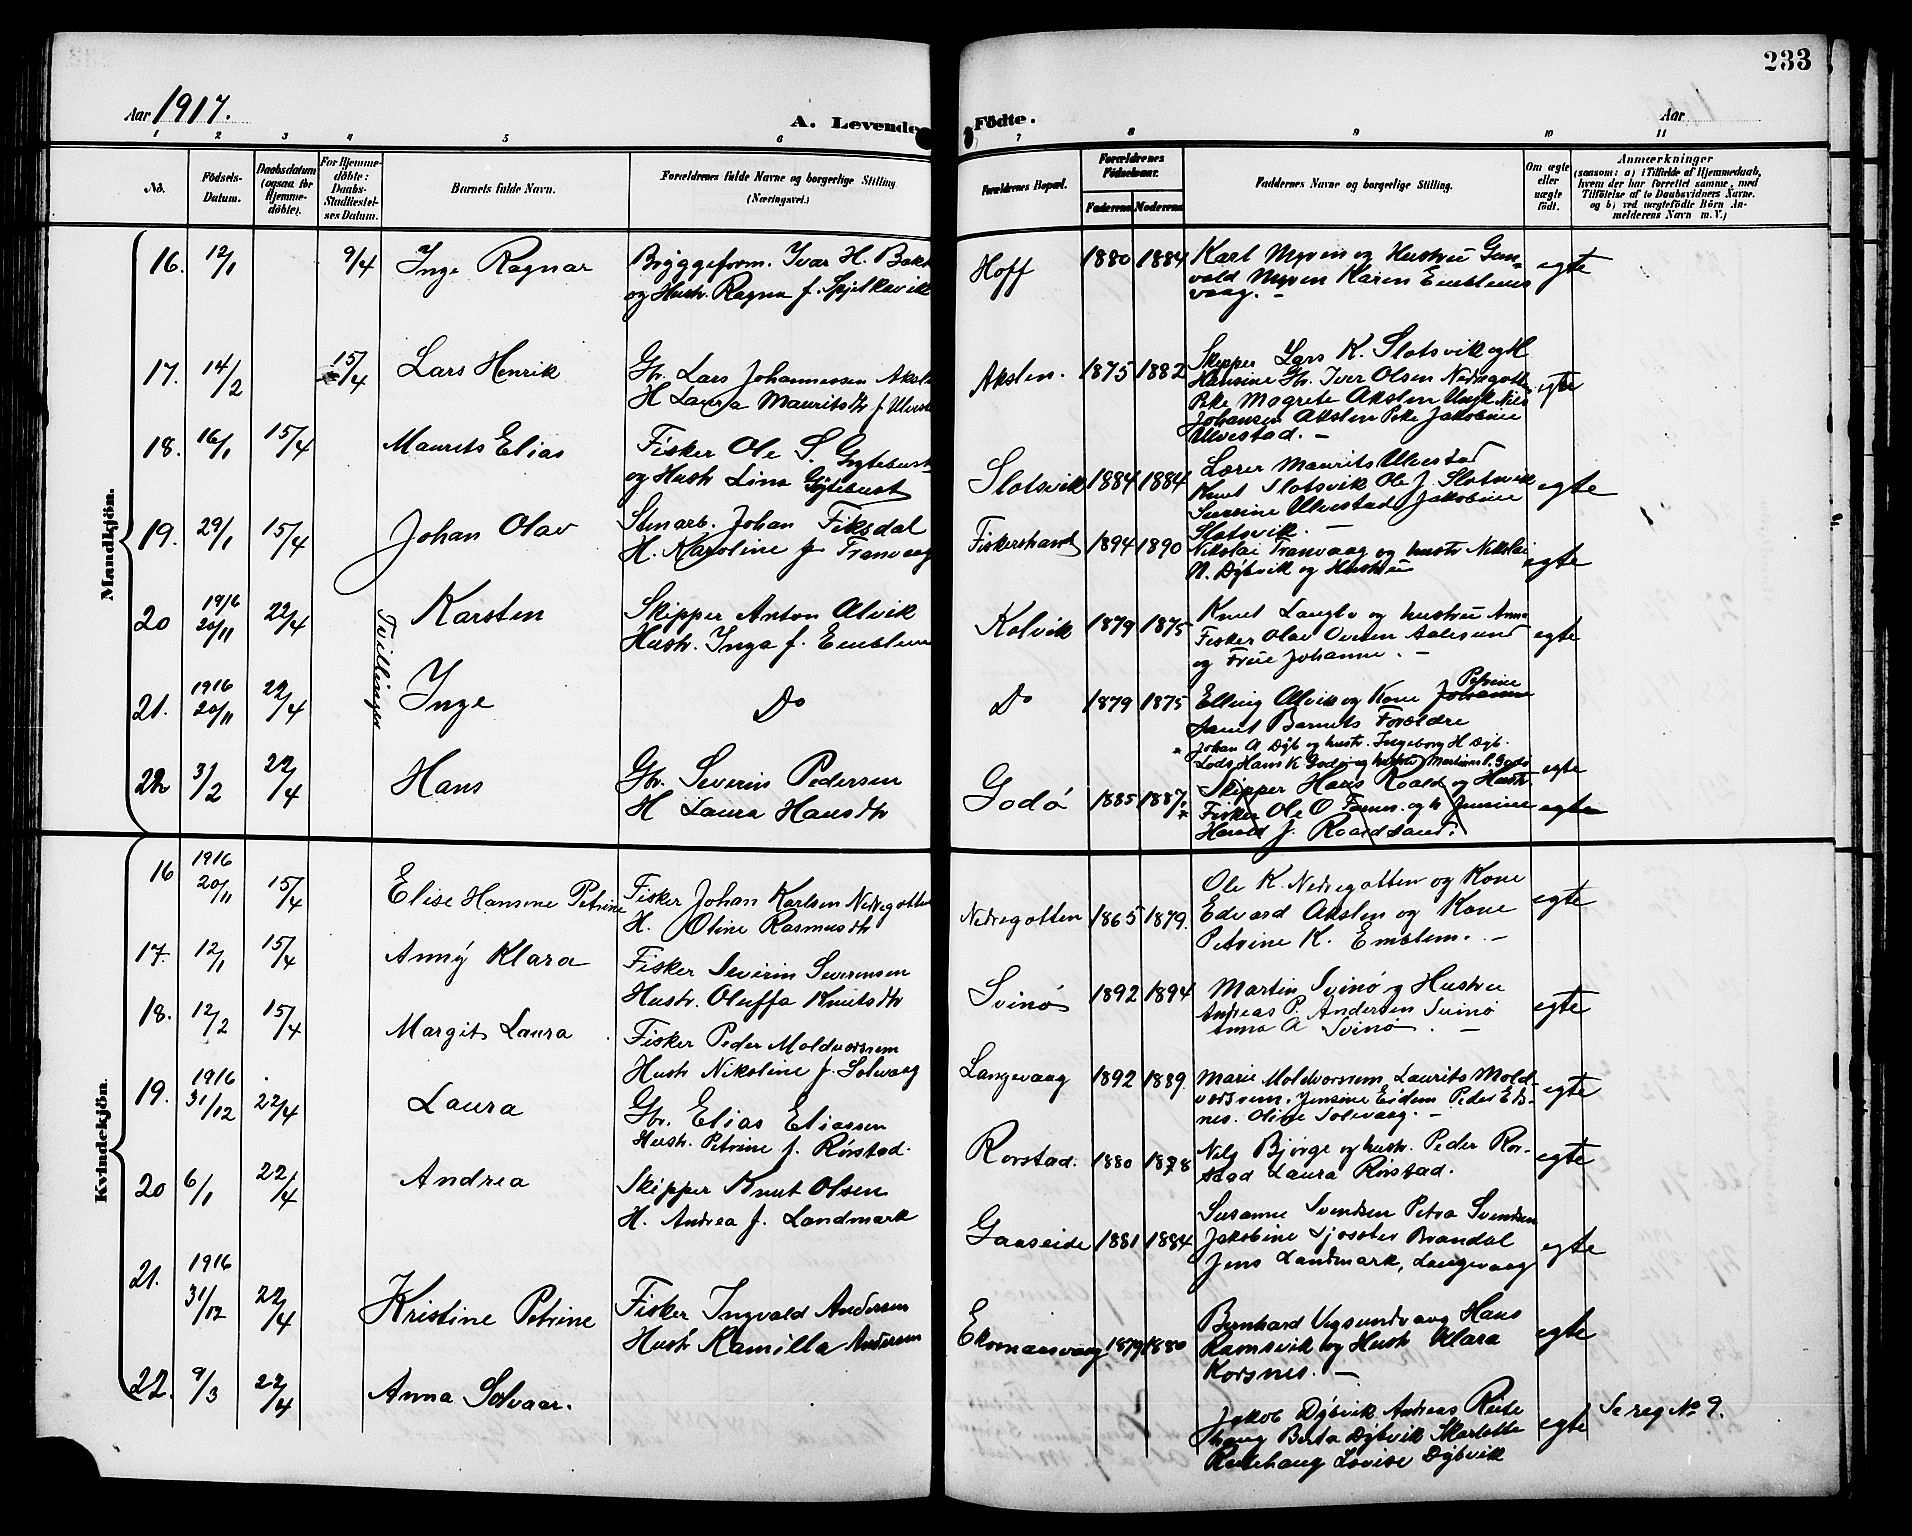 233
Aar 1917.
A. Levende Födte.
Aar
1 2 3 4 5 6 7 8 9 10 11
No.
Födsels-Datum.
Daabsdatum (ogsaa for Hjemme-döbte).
For Hjemme-döbte: Daabs-Stadfæstel-ses Datum.
Barnets fulde Navn.
Forældrenes fulde Navne og borgerlige Stilling (Næringsvei.)
Forældrenes Bopæl.
Forældrenes Födselsaar.
Faderens Moderens
Faddernes Navne og borgerlige Stilling.
Om ægte eller uægte födt.
Anmærkninger
(saasom: a) i Tilfælde af Hjemmedaab,
hvem der har forrettet samme, med
Tilföielse af to Daabsvidners Navne.
og b) ved uægtefödte Börn An-
melderens Navn m. V.)
Mandkjön.
16. 12/1 9/4 Inge Ragnar
Bryggeform. Ivar H. Bakk
og Hustr. Ragna f. Spjelkavik
Hoff 1880 1884
Karl Myren og Hustru Gun-
vald Myren Karen Emblems
vaag. —
egte
17. 14/2 15/4 Lars Henrik
Gbr. Lars Johannessen Aksl
H Laura Mauritsdtr f. Ulvest
Akslen. 1875 1882
Skipper Lars K. Slotsvik og H
Hansine Gbr. Iver Olsen Nedregott
Pike Magrete Akslen Ungk
Johansen Akslen Pike Jakobine
Ulvestad. —
egte
18. 16/1 15/4 Maurits Elias
Fisker Ole S. Gytebust
og Hustr Lina Gytebust
Slotsvik 1884 1884
Lærer Maurits Ulvestad
Knut Slotsvik Ole J. Slotsvik
Severine Ulvestad Jakobine
Slotsvik. —
egte
19. 29/1 15/4 Johan Olav
Stenarb. Johan Fiksdal
H. Karoline f. Tranvaag
Fiskerstrand 1894 1890
Nikolai Tranvaag og hustr Nikolai
N. Dybvik og Hustru
egte
20 1916 20/11 22/4 Karsten
Tvillinger
Skipper Anton Alvik
Hustr. Inga f. Emblem
Kolvik 1879 1875
Knut Langlo og hustru Anna
Fisker Olav Aalesund
og Frue Johanne. —
egte
21. 1916 20/11 22/4 Inge
Do
Do 1879 1875
Elling Alvik og Kone Johanne Petrine
samt Barnets Forældre
22 3/2 22/4 Hans
Gbr. Severin Pedersen
H Laura Hansdtr
Godö 1885 1887
* Johan A Dyb og hustr. Ingeborg H Dyb.
Lods Hans K Godö og hustr Martine P. Godö
egte
* Skipper Hans Roald og Hustr.
Fisker Ole O og h Jensine
Harald J. Roaldsand.
egte
Kvindekjön.
16 1916 20/11 15/4 Elise Hansine Petrine
Fisker Johan Karlsen Nedregotten
H. Oline Rasmusdtr
Nedregotten 1865 1879.
Ole K. Nedregotten og Kone
Edvard Akslen og Kone
Petrine K. Emblem. —
egte
17. 12/1 15/4 Anny Klara
Fisker Severin Severinsen
Hustr. Oluffa Knutsdtr
Svinö 1892 1894
Martin Svinö og Hustru
Andreas P. Andersen Svinö
Anna A Svinö. —
egte
18. 12/2 15/4 Margit Laura
Fisker Peder Moldværsrem
Hustr Nikoline f. Solevaag
Langevaag 1892 1889.
Marie Moldværsrem, Laurits Mold-
værsrem, Jensine Eidem Peder Eds-
nes. Oline Solevaag. —
egte
19. 1916 31/12 22/4 Laura
Gbr. Elias Eliassen
Hustr. Petrine f. Rörstad.
Rorstad. 1880 1878
Nils Bjørge og hustr. Peder Rör-
stad Laura Rörstad.
egte
20 6/1 22/4 Andrea
Skipper Knut Olsen
H. Andrea f. Landmark
Gaaseide 1881 1884
Susanne Svendsen Petra Svendsen
Jakobine Brandal
Jens Landmark, Langevaag
egte
21. 1916 31/12 22/4 Kristine Petrine
Fisker Ingvald Andersen
Hustr Kamilla Andersen
1879 1880
Bernhard Vegsundvaag Hans
Ramsvik og Hustr Klara
Korsnes. —
egte
22. 9/3 22/4 Anna Solvaar.
Jakob Dybvik Andreas Reite
haug Berta Dybvik Skarlotte
Reitehaug Lovise Dybvik
egte
Se reg No 9.